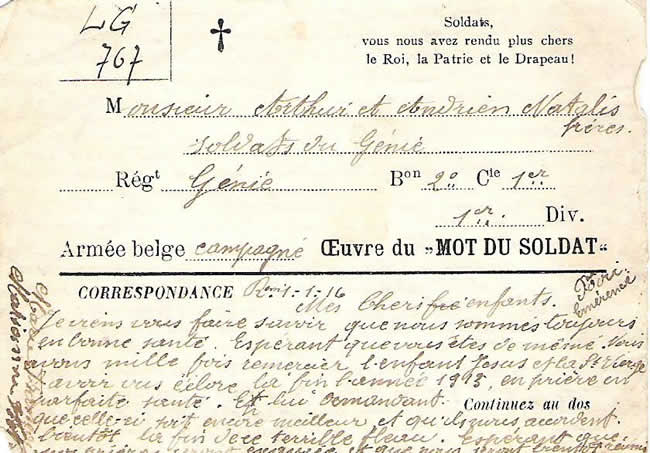 LG
767
Soldats,
vous nous avez rendu plus chers
le Roi, la Patrie et le Drapeau!
Monsieur Arthur et Andrien Natalis
frères.
soldats du Génie
Régt Génie Bon 2° Cie 1er
1er. Div.
Armée belge campagne Œuvre du „MOT DU SOLDAT“
CORRESPONDANCE 1-1-16
Émérence
Mes Cheri enfants.
Je viens vous faire savoir que nous sommes toujours
en bonne santé. Espérant que vous êtes de même. Nous
vous mille fois remercier l'enfant Jesus et la Ste Vierge
d'avoir vus éclore la fin l'année 1915, en prière en
parfaite santé. Et lui demandant Continuez au dos
que celle-ci soit encore meilleur et qu'ils accordent
bientôt la fin de ce terrible fleau. Espérant que